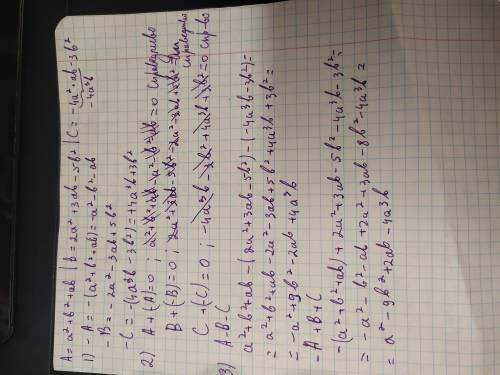 A = a²+b²+ab | B = 2a²+3ab-5b² | C = -4a²·ab-3b²
-4a³b
1) -A = -(a²+b²+ab) = -a²-b²-ab
-B = -2a²-3ab+5b²
-C = -(-4a³b-3b²) = +4a³b+3b²
2) A+(-A)=0 ; a²+b²+ab-a²-b²-ab=0 справедливо
B+(B)=0 ; 2a²+3ab-5b²-2a²-3ab+5b²=0 справедливо
C+(C)=0 ; -4a³b-3b²+4a³b+3b²=0 спр-во
3) A-B-C
a²+b²+ab-(2a²+3ab-5b²)-(-4a³b-3b²)=
= a²+b²+ab-2a²-3ab+5b²+4a³b+3b²=
= -a²+9b²-2ab+4a³b
-A+B+C
-(a²+b²+ab)+2a²+3ab-5b²-4a³b-3b²=
= -a²-b²-ab+2a²+3ab-8b²-4a³b=
= a²-9b²+2ab-4a3b